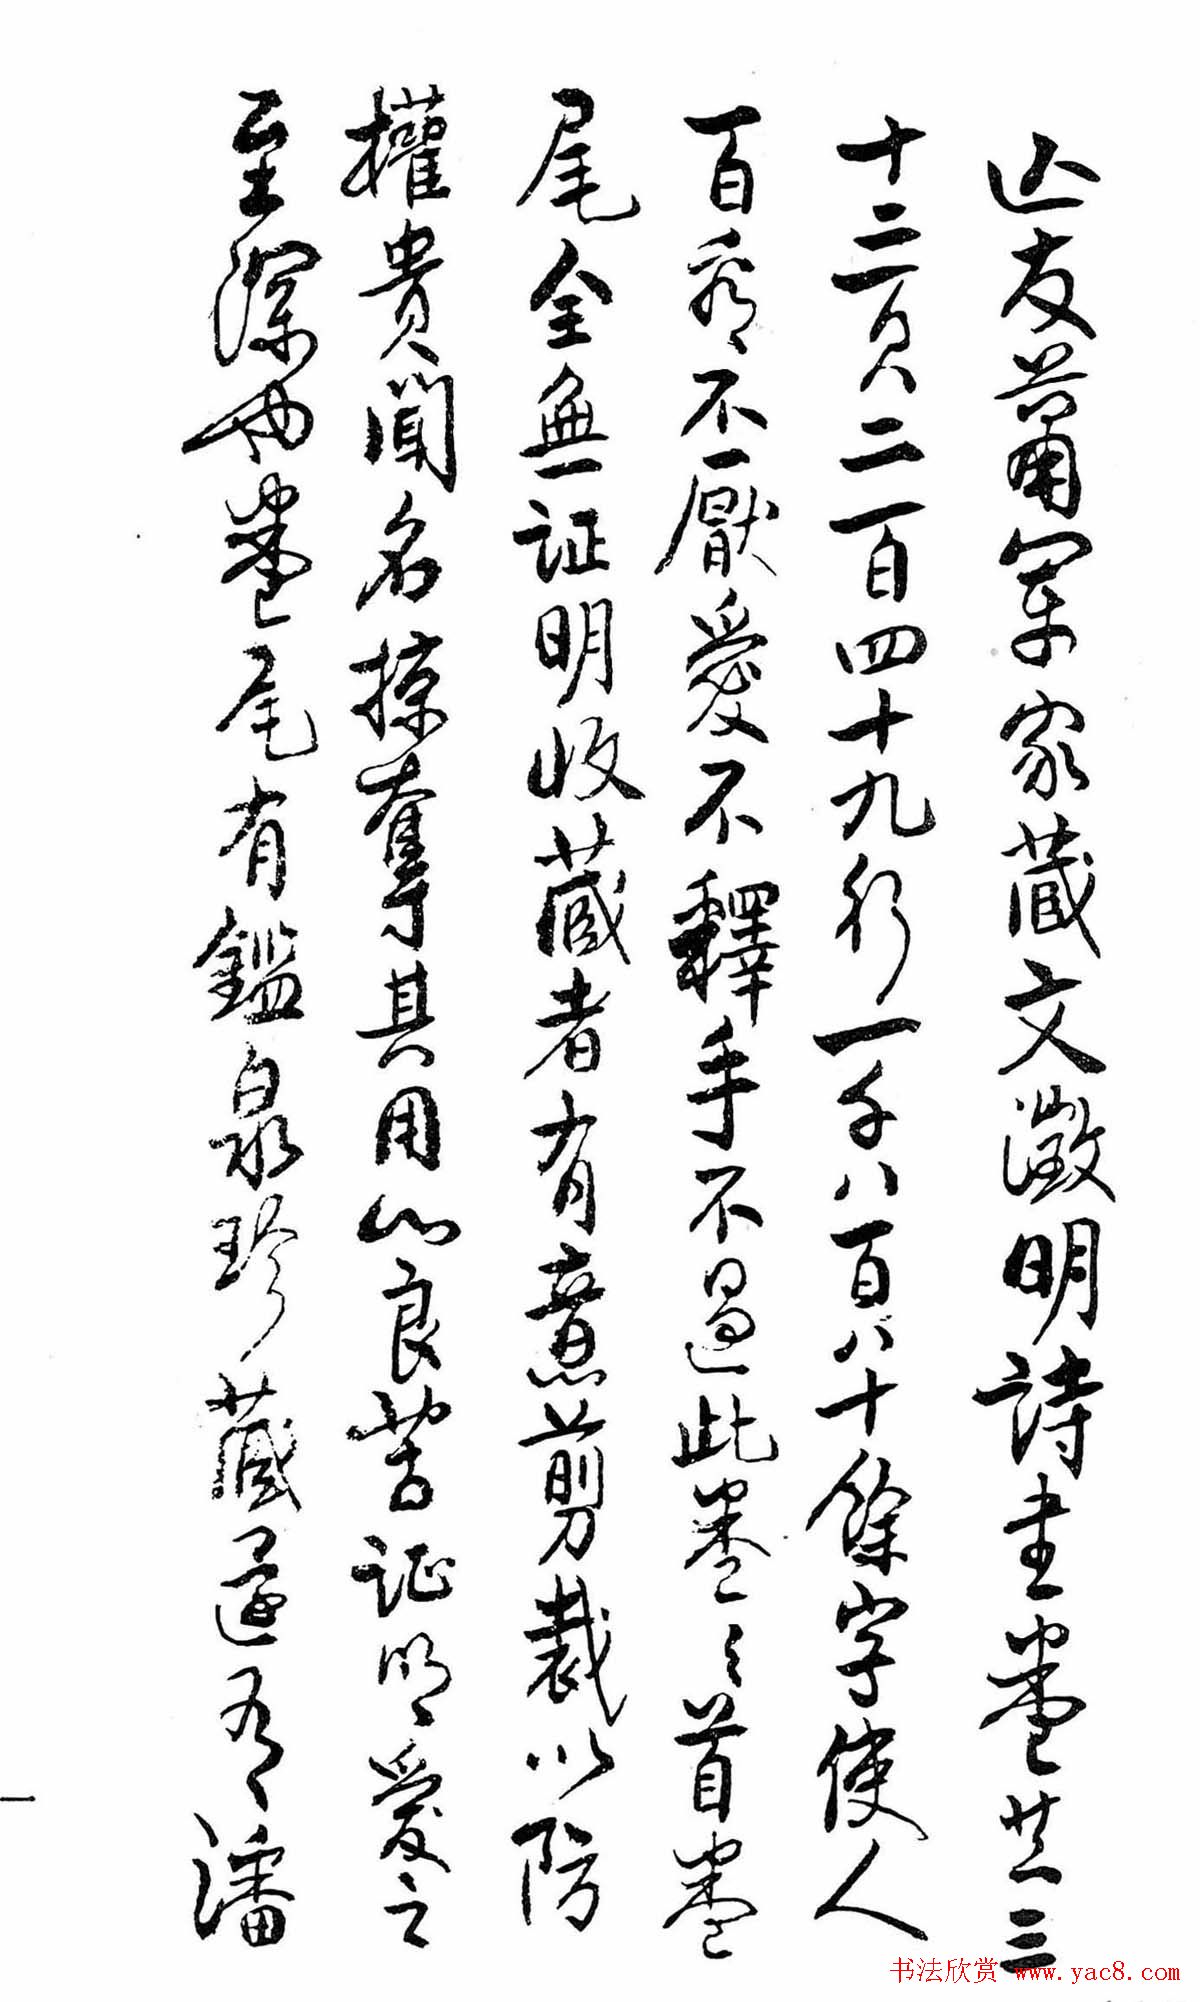 友莆家藏文澂明詩書卷共三
十二頁二百四十九行一千八百八十餘字使人
百看不厭愛不釋手不過此卷之首卷
尾全無証明收藏者有意剪裁以防
權貴聞名掠奪其用心良苦証明愛之
至深也卷尾有鑑泉珍藏還有潘
一
书法欣赏 www.yac8.com